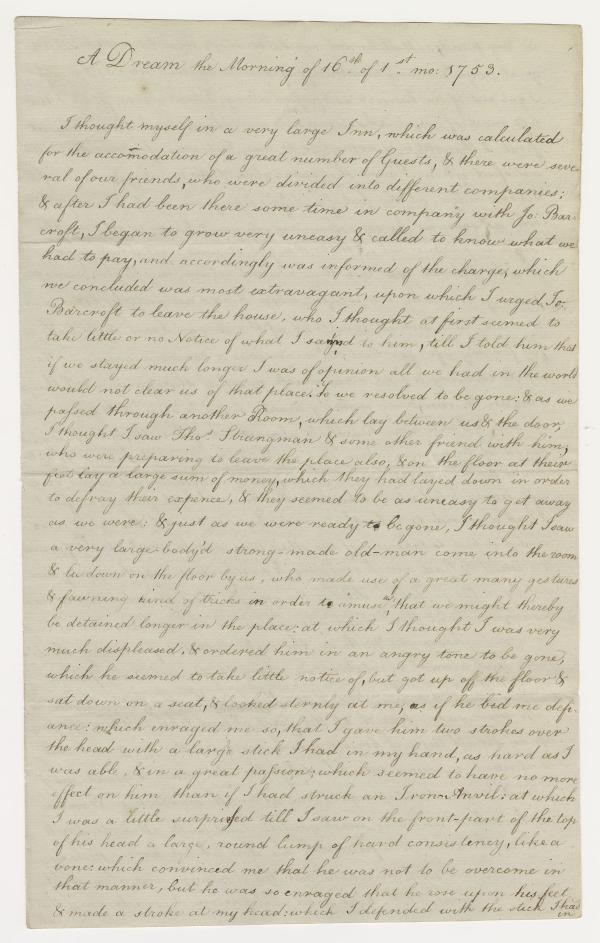 A Dream the Morning of 16th. of 1st. mo: 1753.
I thought myself in a very large Inn, which was calculated
for the accomodation of a great number of Guests, & there were seve-
ral of our friends, who were divided into different companies:
& after I had been there some time in company with Jo: Bar-
croft, I began to grow very uneasy & called to know what we
had to pay, and accordingly was informed of the charge, which
we concluded was most extravagant, upon which I urged Jo:
Barcroft to leave the house, who I thought at first seemed to
take little or no Notice of what I said to him, till I told him that
if we stayed much longer I was of opinion all we had in the world
would not clear us of that place; so we resolved to be gone: & as we
passed through another Room, which lay between us & the door,
I thought I saw Thos. Strangman & some other friend with him,
who were preparing to leave the place also, & on the floor at their
feet lay a large sum of money, which they had layed down in order
to defray their expence, & they seemed to be as uneasy to get away
as we were: & just as we were ready to be gone, I thought I saw
a very large-body'd strong-made old-man come into the room
& lie down on the floor by us, who made use of a great many gestures
& fawning kind of tricks in order to amuse us, that we might thereby
be detained longer in the place: at which I thought I was very
much displeased, & ordered him in an angry tone to be gone,
which he seemed to take little notice of, but got up off the floor &
sat down on a seat, & looked sternly at me, as if he bid me defi-
ance: which enraged me so, that I gave him two strokes over
the head with a large stick I had in my hand, as hard as I
was able, & in a great passion; which seemed to have no more
effect on him than if I had struck an Iron-Anvil: at which
I was a little surprised till I saw on the front-part of the top
of his head a large, round lump of hard consistency, like a
bone: which convinced me that he was not to be overcome in
that manner, but he was so enraged that he rose upon his feet,
& made a stroke at my head: which I defended with the stick I had
in